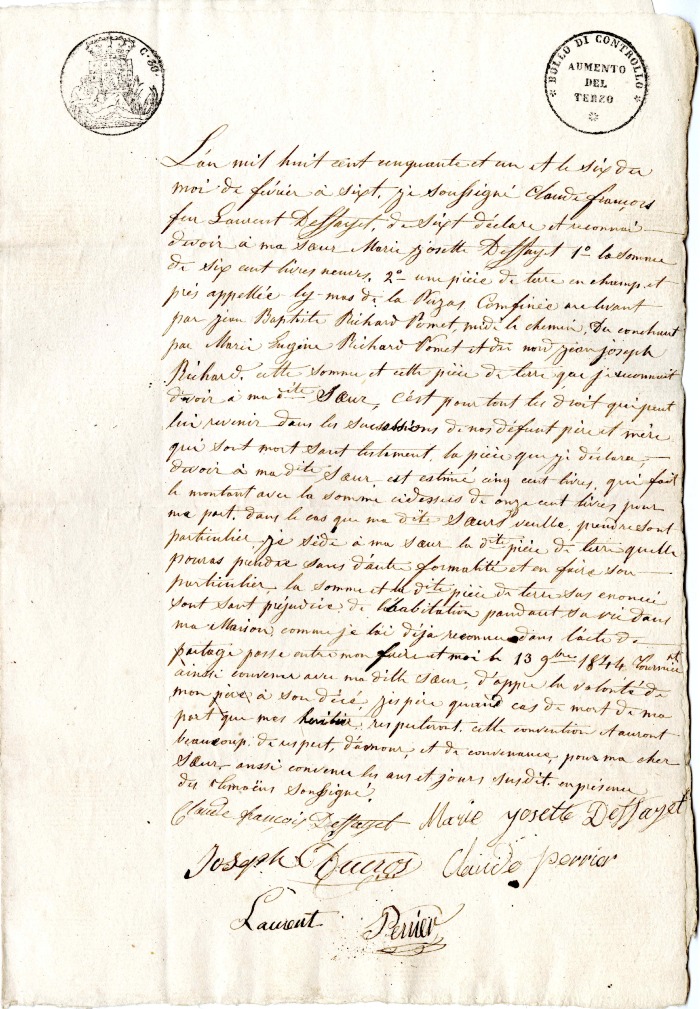 C. 30.
BOLLO DI CONTROLLO
AUMENTO
DEL
TERZO
L'an mil huit cent cinquante et un et le six du
moi de févier à sixt, je soussigné Claude françois
feu Laurent Deffayet, de Sixt déclare et reconnai
devoir à ma sœur Marie josette Deffayet 1º la somme
de six cent livres neuves, 2º une pièce de terre en champ et
prés appellée les mas de la Confinée au levant
par jean Baptiste Richard Pomet, midi le chemin, Du couchant
par Marie Eugène Richard Pomet et du nord, jean joseph
Richard, cette somme et cette pièce de terre que je reconnait
devoir à ma dite Sœur, c'est pour tout les droit qui peut
lui revenir dans les successions de nos défunt père et mère
qui sont mort sant testament, la pièce que j'y déclare
devoir à ma dite Sœur est estimé cinq cent livres, qui fait
le montant avec la somme cidessus de onze cent livres pour
ma part, dans le cas que ma dite Sœurs veulle prendre sont
particulier je sède à ma sœur la dte pièce de terre quelle
pouras prendre sans d'autre formalité et en faire son
particulier, la somme et la dite pièce de terre sus enoncé
sont sant préjudice de l'habitation pandant sa vie dans
ma Maison, comme je lai déja reconnu dans l'acte de
partage passe entre mon frère et moi le 13 9bre 1844
ainsi convenu avec ma ditte sœur, d'apre la volonté de
mon père à son décé, j'espère quand cas de mort de ma
part que mes héritié respecteront cette convention et auront
beaucoup de respect, d'amour, et de convenance, pour ma cher
sœur, aussi convenu les ans et jours susdit. en présence
des témoins soussigné.
Claude françois Deffayet Marie yosette Deffayet
Joseph Ducros Claude perrier
Laurent Perrier